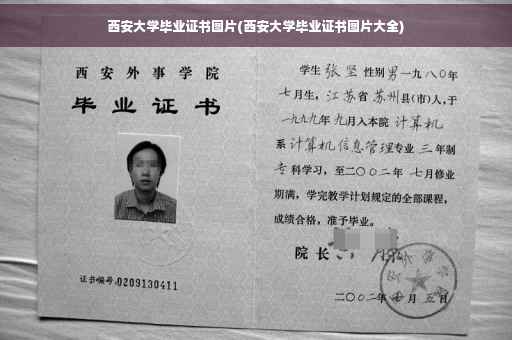 西安大学毕业证书图片(西安大学毕业证书图片大全)
西安外事学院
毕业证书
证书编号:0209130411
学生 张坚 性别 男 一九八〇年
七月生,江苏省 苏州县(市)人,于
一九九九年 九月入本院 计算机
系 计算机信息管理专业 三 年制
专科学习,至二〇〇二年 七月修业
期满,学完教学计划规定的全部课程,
成绩合格,准予毕业。
院长
二〇〇二年 月 五日